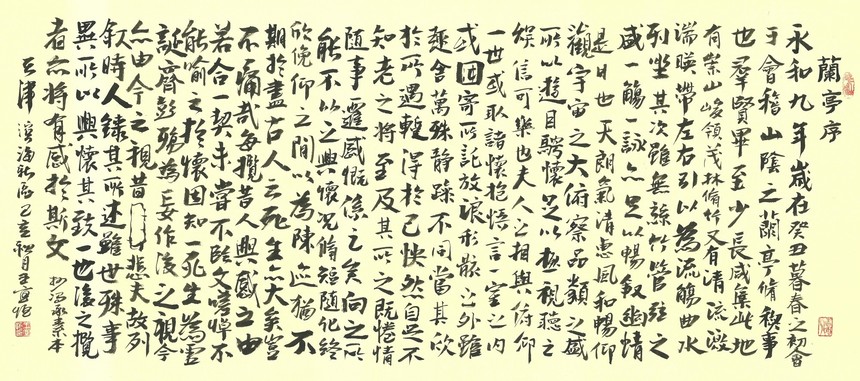 蘭亭序
永和九年歲在癸丑暮春之初會
于會稽山陰之蘭亭脩禊事
也羣賢畢至少長咸集此地
有崇山峻領茂林脩竹又有清流激
湍暎帶左右引以為流觴曲水
列坐其次雖無絲竹管弦之
盛一觴一詠亦足以暢敘幽情
是日也天朗氣清惠風和暢仰
觀宇宙之大俯察品類之盛
所以遊目騁懷足以極視聽之
娛信可樂也夫人之相與俯仰
一世或取諸懷抱悟言一室之內
或因寄所託放浪形骸之外雖
趣舍萬殊靜躁不同當其欣
於所遇輙得於己怏然自足不
知老之將至及其所之既惓情
隨事遷感慨係之矣向之所
能不以之興懷況脩短隨化終
欣俛仰之間以為陳迹猶不
期於盡古人云死生亦大矣豈
不痛哉每攬昔人興感之由
若合一契未嘗不臨文嗟悼不
能喻之於懷固知一死生為虛
誕齊彭殤為妄作後之視今
亦由今之視昔悲夫故列
敘時人錄其所述雖世殊事
異所以興懷其致一也後之攬
者亦將有感於斯文馮承素本
天津濱海新區己亥